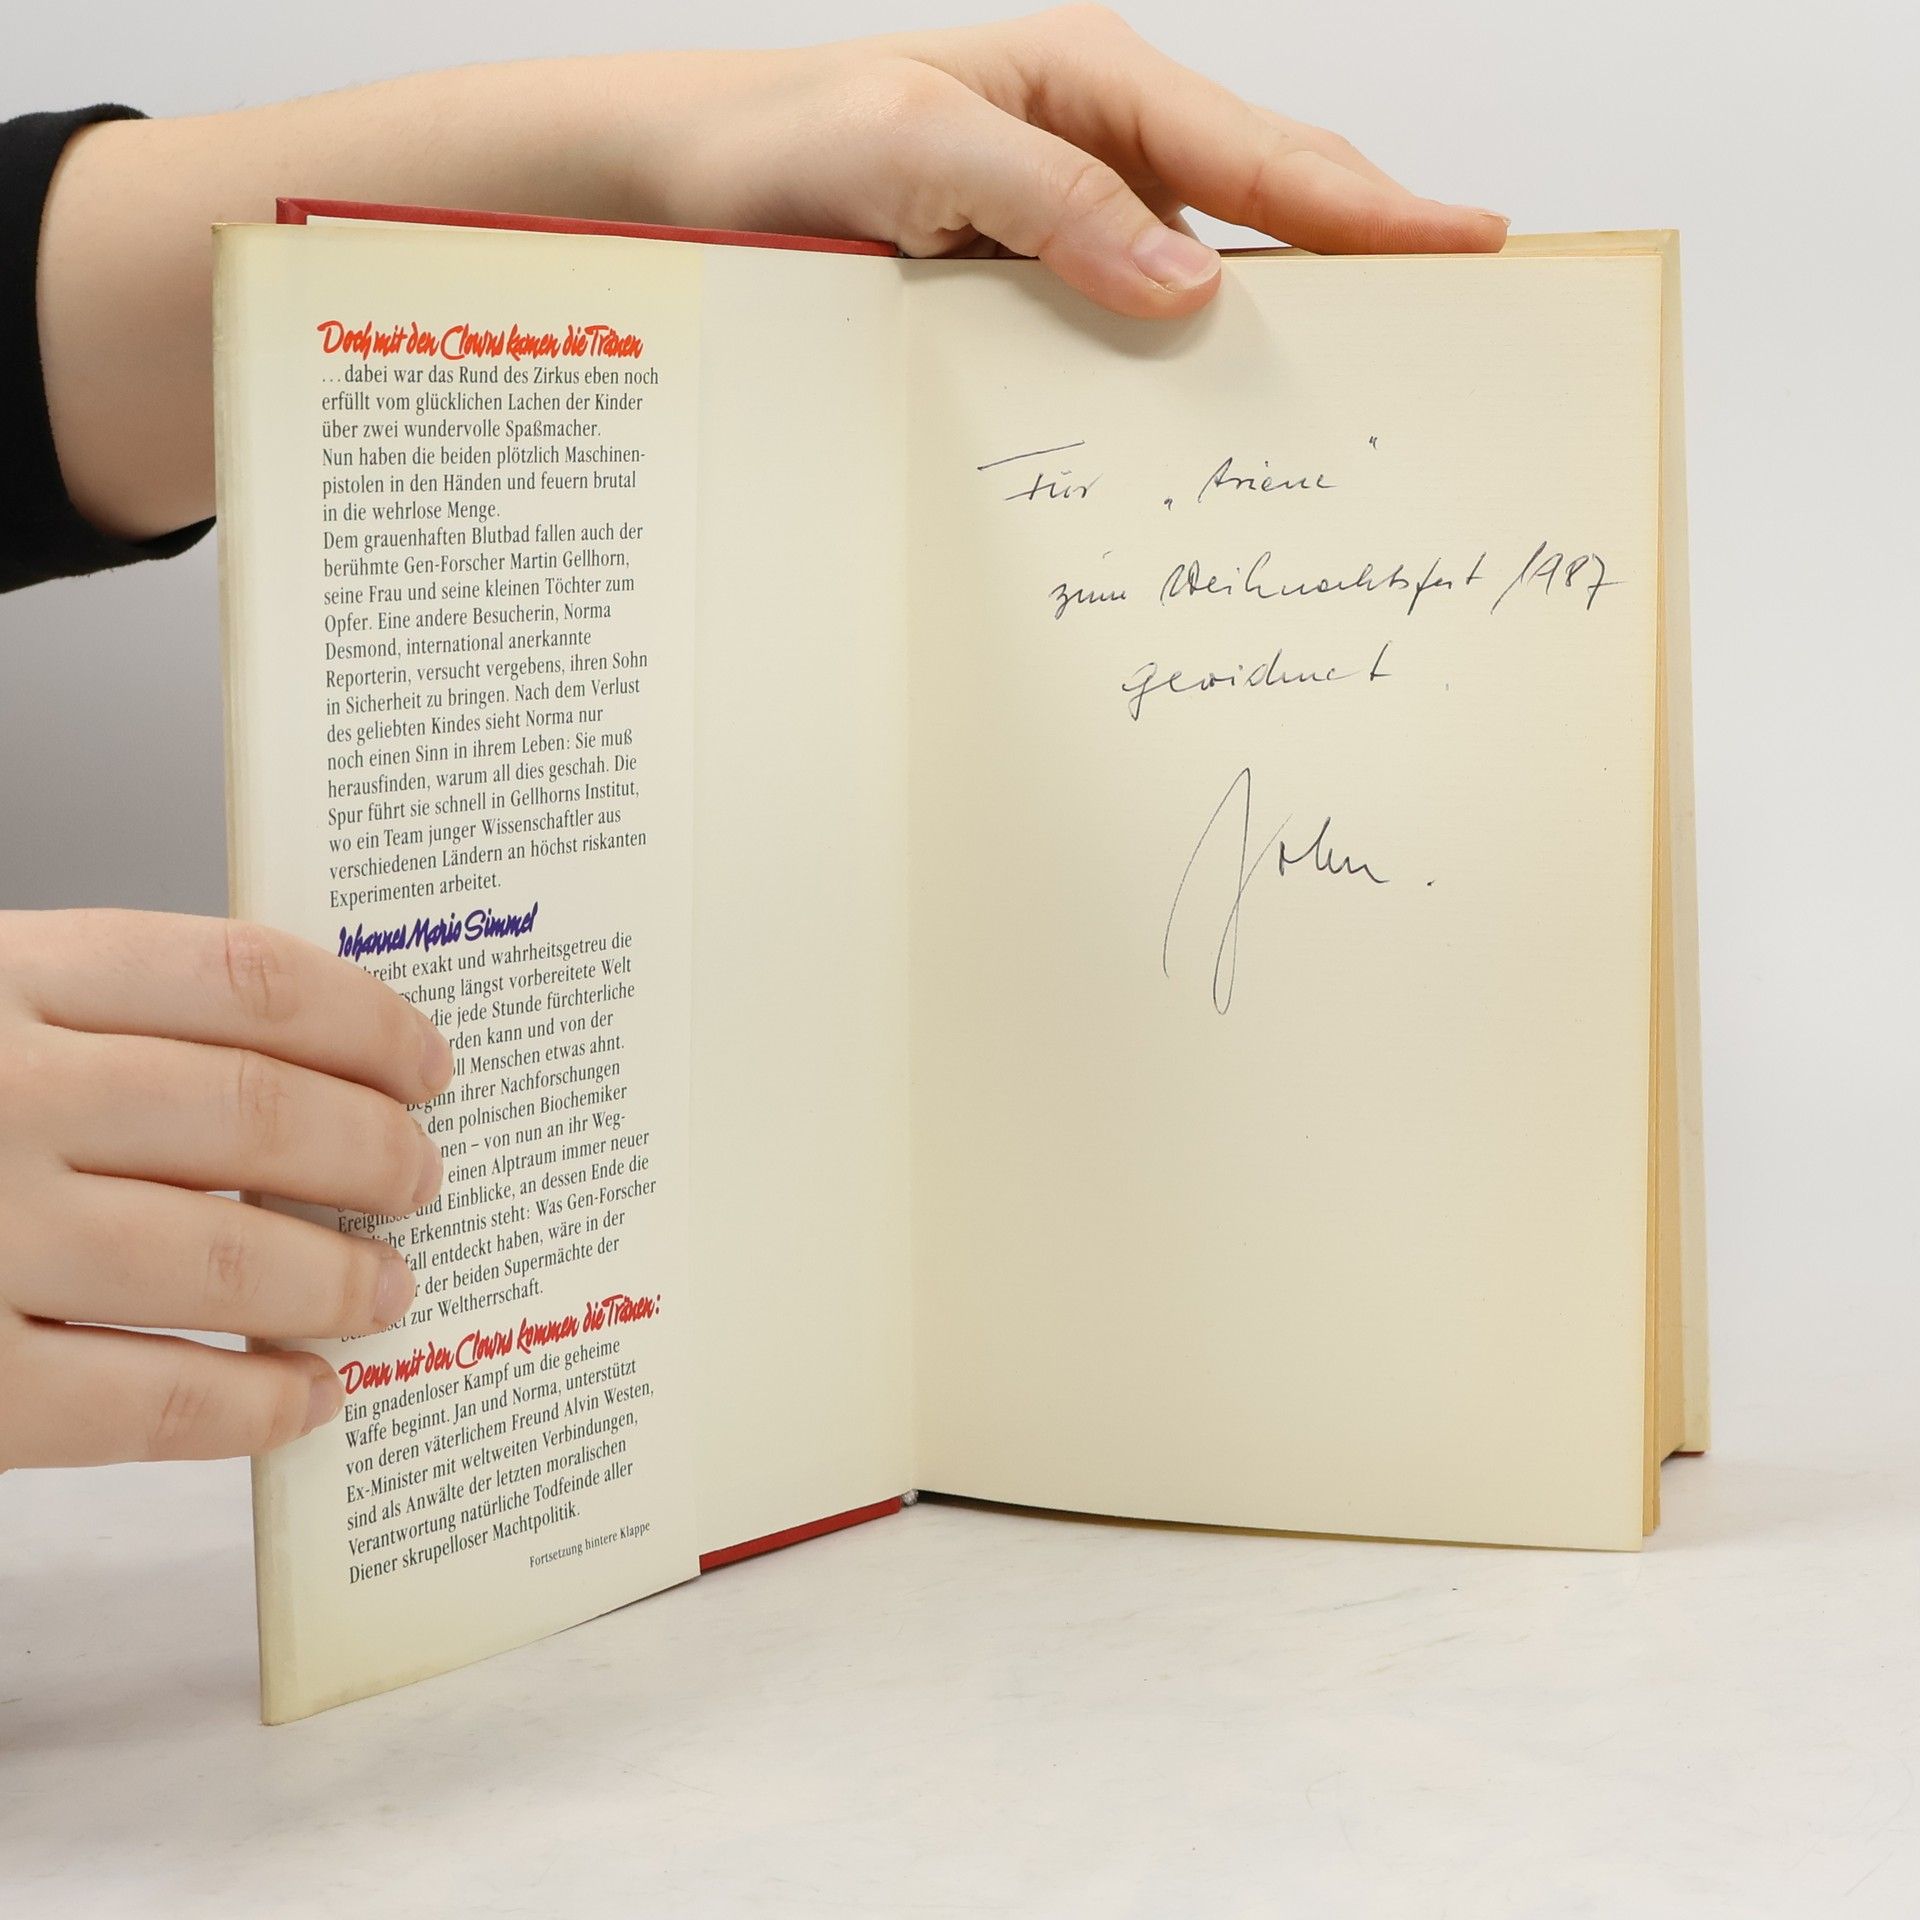 Doch mit den Clowns kamen die Tränen
... dabei war das Rund des Zirkus eben noch
erfüllt vom glücklichen Lachen der Kinder
über zwei wundervolle Spaßmacher.
Nun haben die beiden plötzlich Maschinen-
pistolen in den Händen und feuern brutal
in die wehrlose Menge.
Dem grauenhaften Blutbad fallen auch der
berühmte Gen-Forscher Martin Gellhorn,
seine Frau und seine kleinen Töchter zum
Opfer. Eine andere Besucherin, Norma
Desmond, international anerkannte
Reporterin, versucht vergebens, ihren Sohn
in Sicherheit zu bringen. Nach dem Verlust
des geliebten Kindes sieht Norma nur
noch einen Sinn in ihrem Leben: Sie muß
herausfinden, warum all dies geschah. Die
Spur führt sie schnell in Gellhorns Institut,
wo ein Team junger Wissenschaftler aus
verschiedenen Ländern an höchst riskanten
Experimenten arbeitet.
Johannes Mario Simmel
exakt und wahrheitsgetreu die
längst vorbereitete Welt
die jede Stunde fürchterliche
kann und von der
Menschen etwas ahnt.
ihrer Nachforschungen
den polnischen Biochemiker
– von nun an ihr Weg-
einen Alptraum immer neuer
und Einblicke, an dessen Ende die
Erkenntnis steht: Was Gen-Forscher
entdeckt haben, wäre in der
der beiden Supermächte der
zur Weltherrschaft.
Denn mit den Clowns kommen die Tränen:
Ein gnadenloser Kampf um die geheime
Waffe beginnt. Jan und Norma, unterstützt
von deren väterlichem Freund Alvin Westen,
Ex-Minister mit weltweiten Verbindungen,
sind als Anwälte der letzten moralischen
Verantwortung natürliche Todfeinde aller
Diener skrupelloser Machtpolitik.
Fortsetzung hintere Klappe
Für „Ariene“
zum Weihnachtsfest 1987
gewidmet.
John.